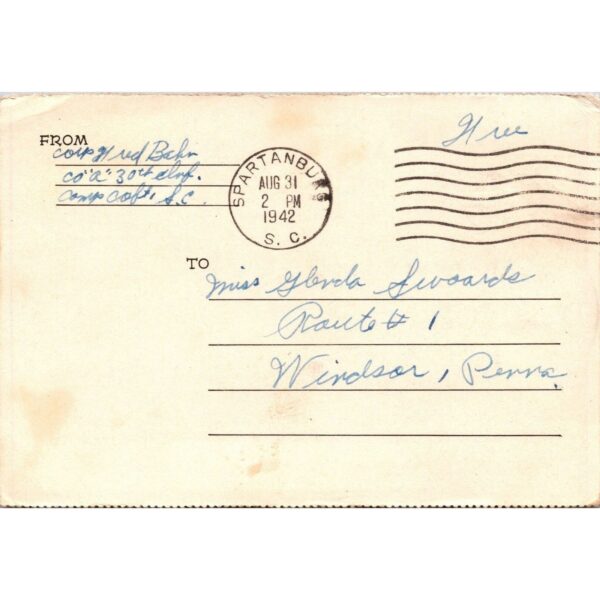 FROM
Corp Fred Bahn
Co "A" 30th Inf.
Camp Croft, S.C.
SPARTANBURG
AUG 31
2 PM
1942
S. C.
Free
TO
Miss Glenda Swoards
Route # 1
Windsor, Penna.